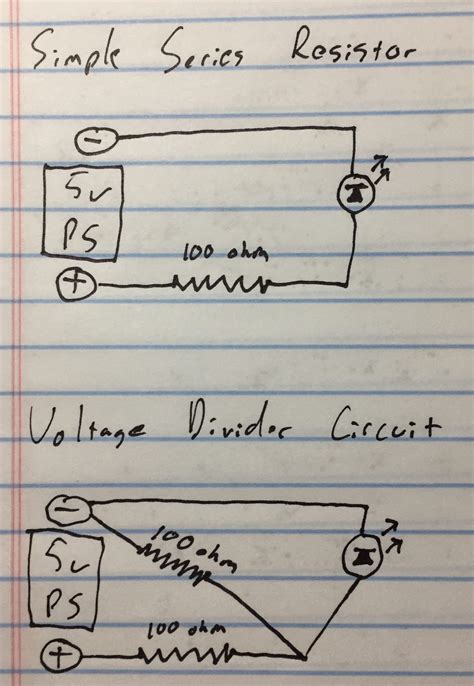 Simple Series Resistor
-
5v
PS
100 ohm
+
Voltage Divider Circuit
-
100 ohm
5v
PS
100 ohm
+